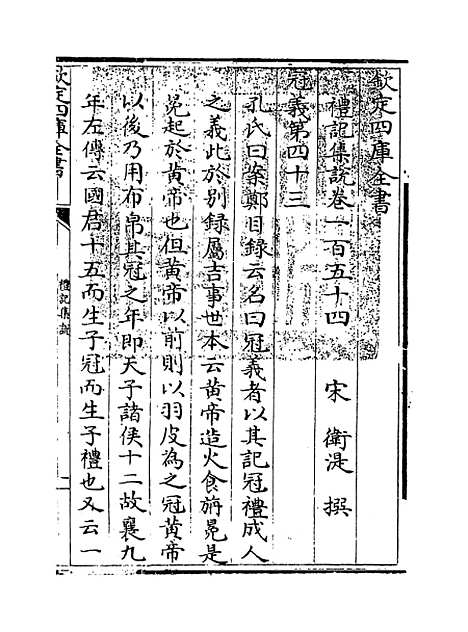 欽定四庫全書
禮記集說卷一百五十四
宋 衛湜 撰
冠義第四十三
孔氏曰案鄭目録云名曰冠義者以其記冠禮成人
之義此於别録屬吉事世本云黄帝造火食旃冕是
冕起於黄帝也但黄帝以前則以羽皮為之冠黄帝
以後乃用布帛其冠之年即天子諸侯十二故襄九
年左傳云國君十五而生子冠而生子禮也又云一
欽定四庫全書
禮記集說
一